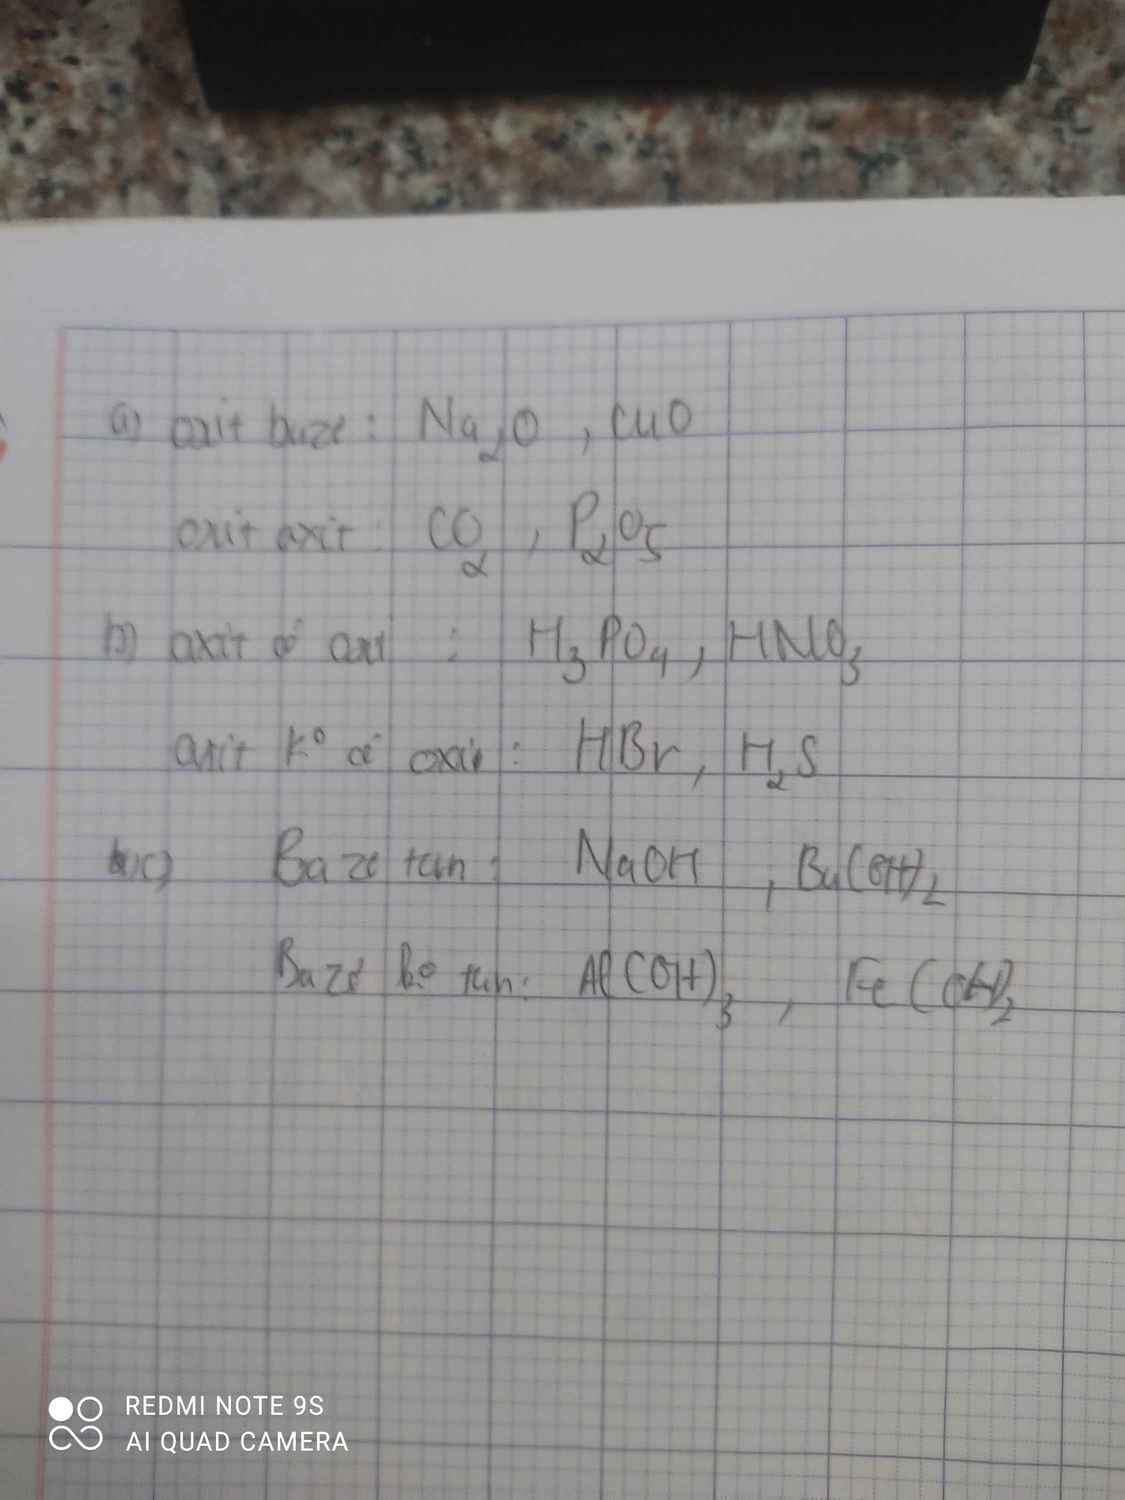 a) oxit baze: Na2O , CuO
oxit axit: CO2 , P2O5
b) axit có oxi : H3PO4, HNO3
axit Ko có oxi : HBr, H2S
c) Baze tan: NaOH , Ba(OH)2
Baze ko tan: Al(OH)3 , Fe(OH)2
REDMI NOTE 9S
AI QUAD CAMERA